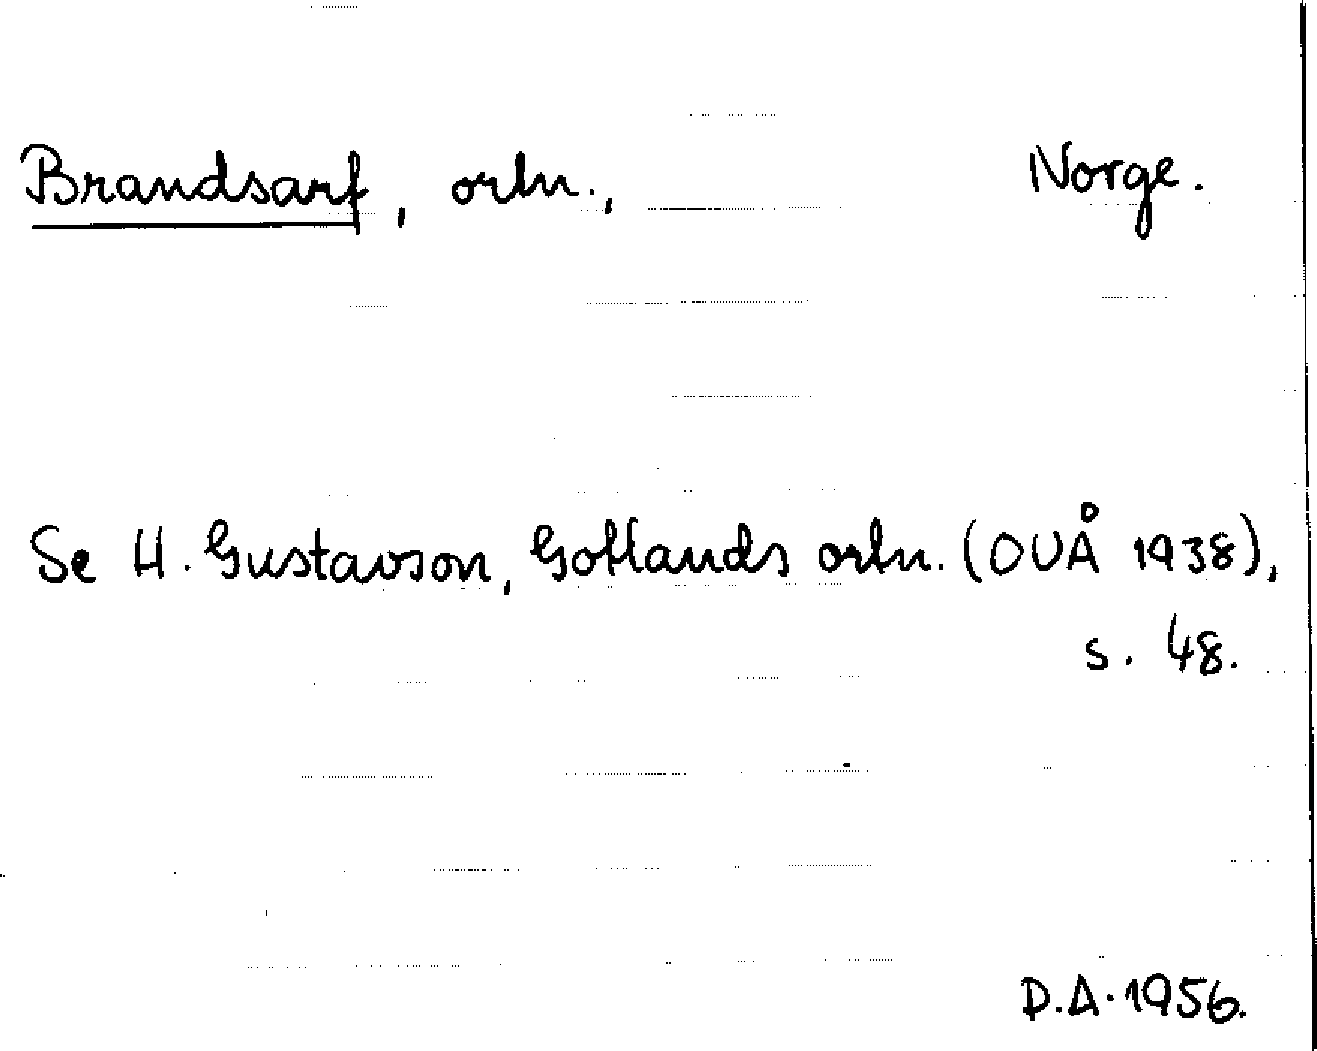 Brandsarf, ortn., Norge.
Se H. Gustavson, Gotlands ortn. (OUÅ 1938),
s. 48.
D.A. 1956.